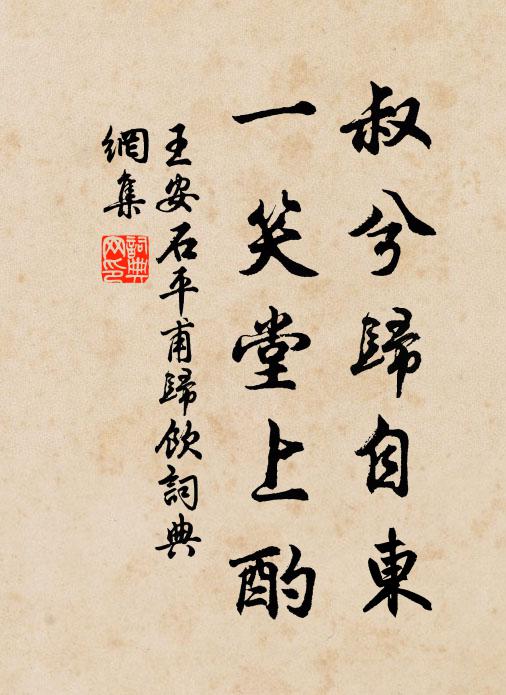 叔兮歸自東
一笑堂上酌
王安石平甫歸飲詞典
網集
詞典网印